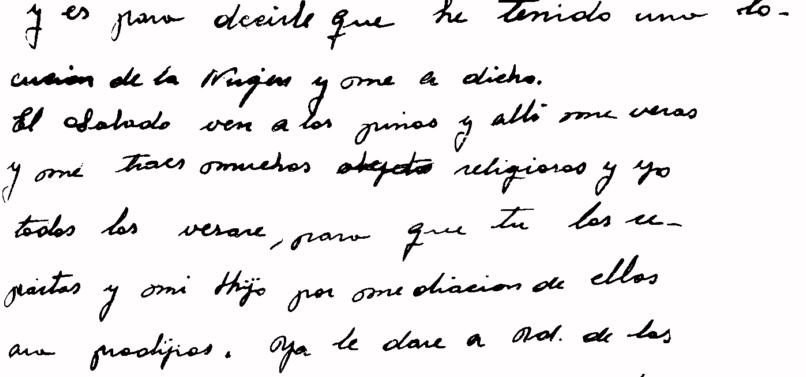 y es para decirle que he tenido una lo-
cucion de la Virgen y me a dicho.
El Sabado ven a los pinos y alli me veras
y me traes muchos objetos religiosos y yo
todos los vesare, para que tu los re-
partas y mi Hijo por mediacion de ellos
ara prodijios. Ya le dare a Vd. de los